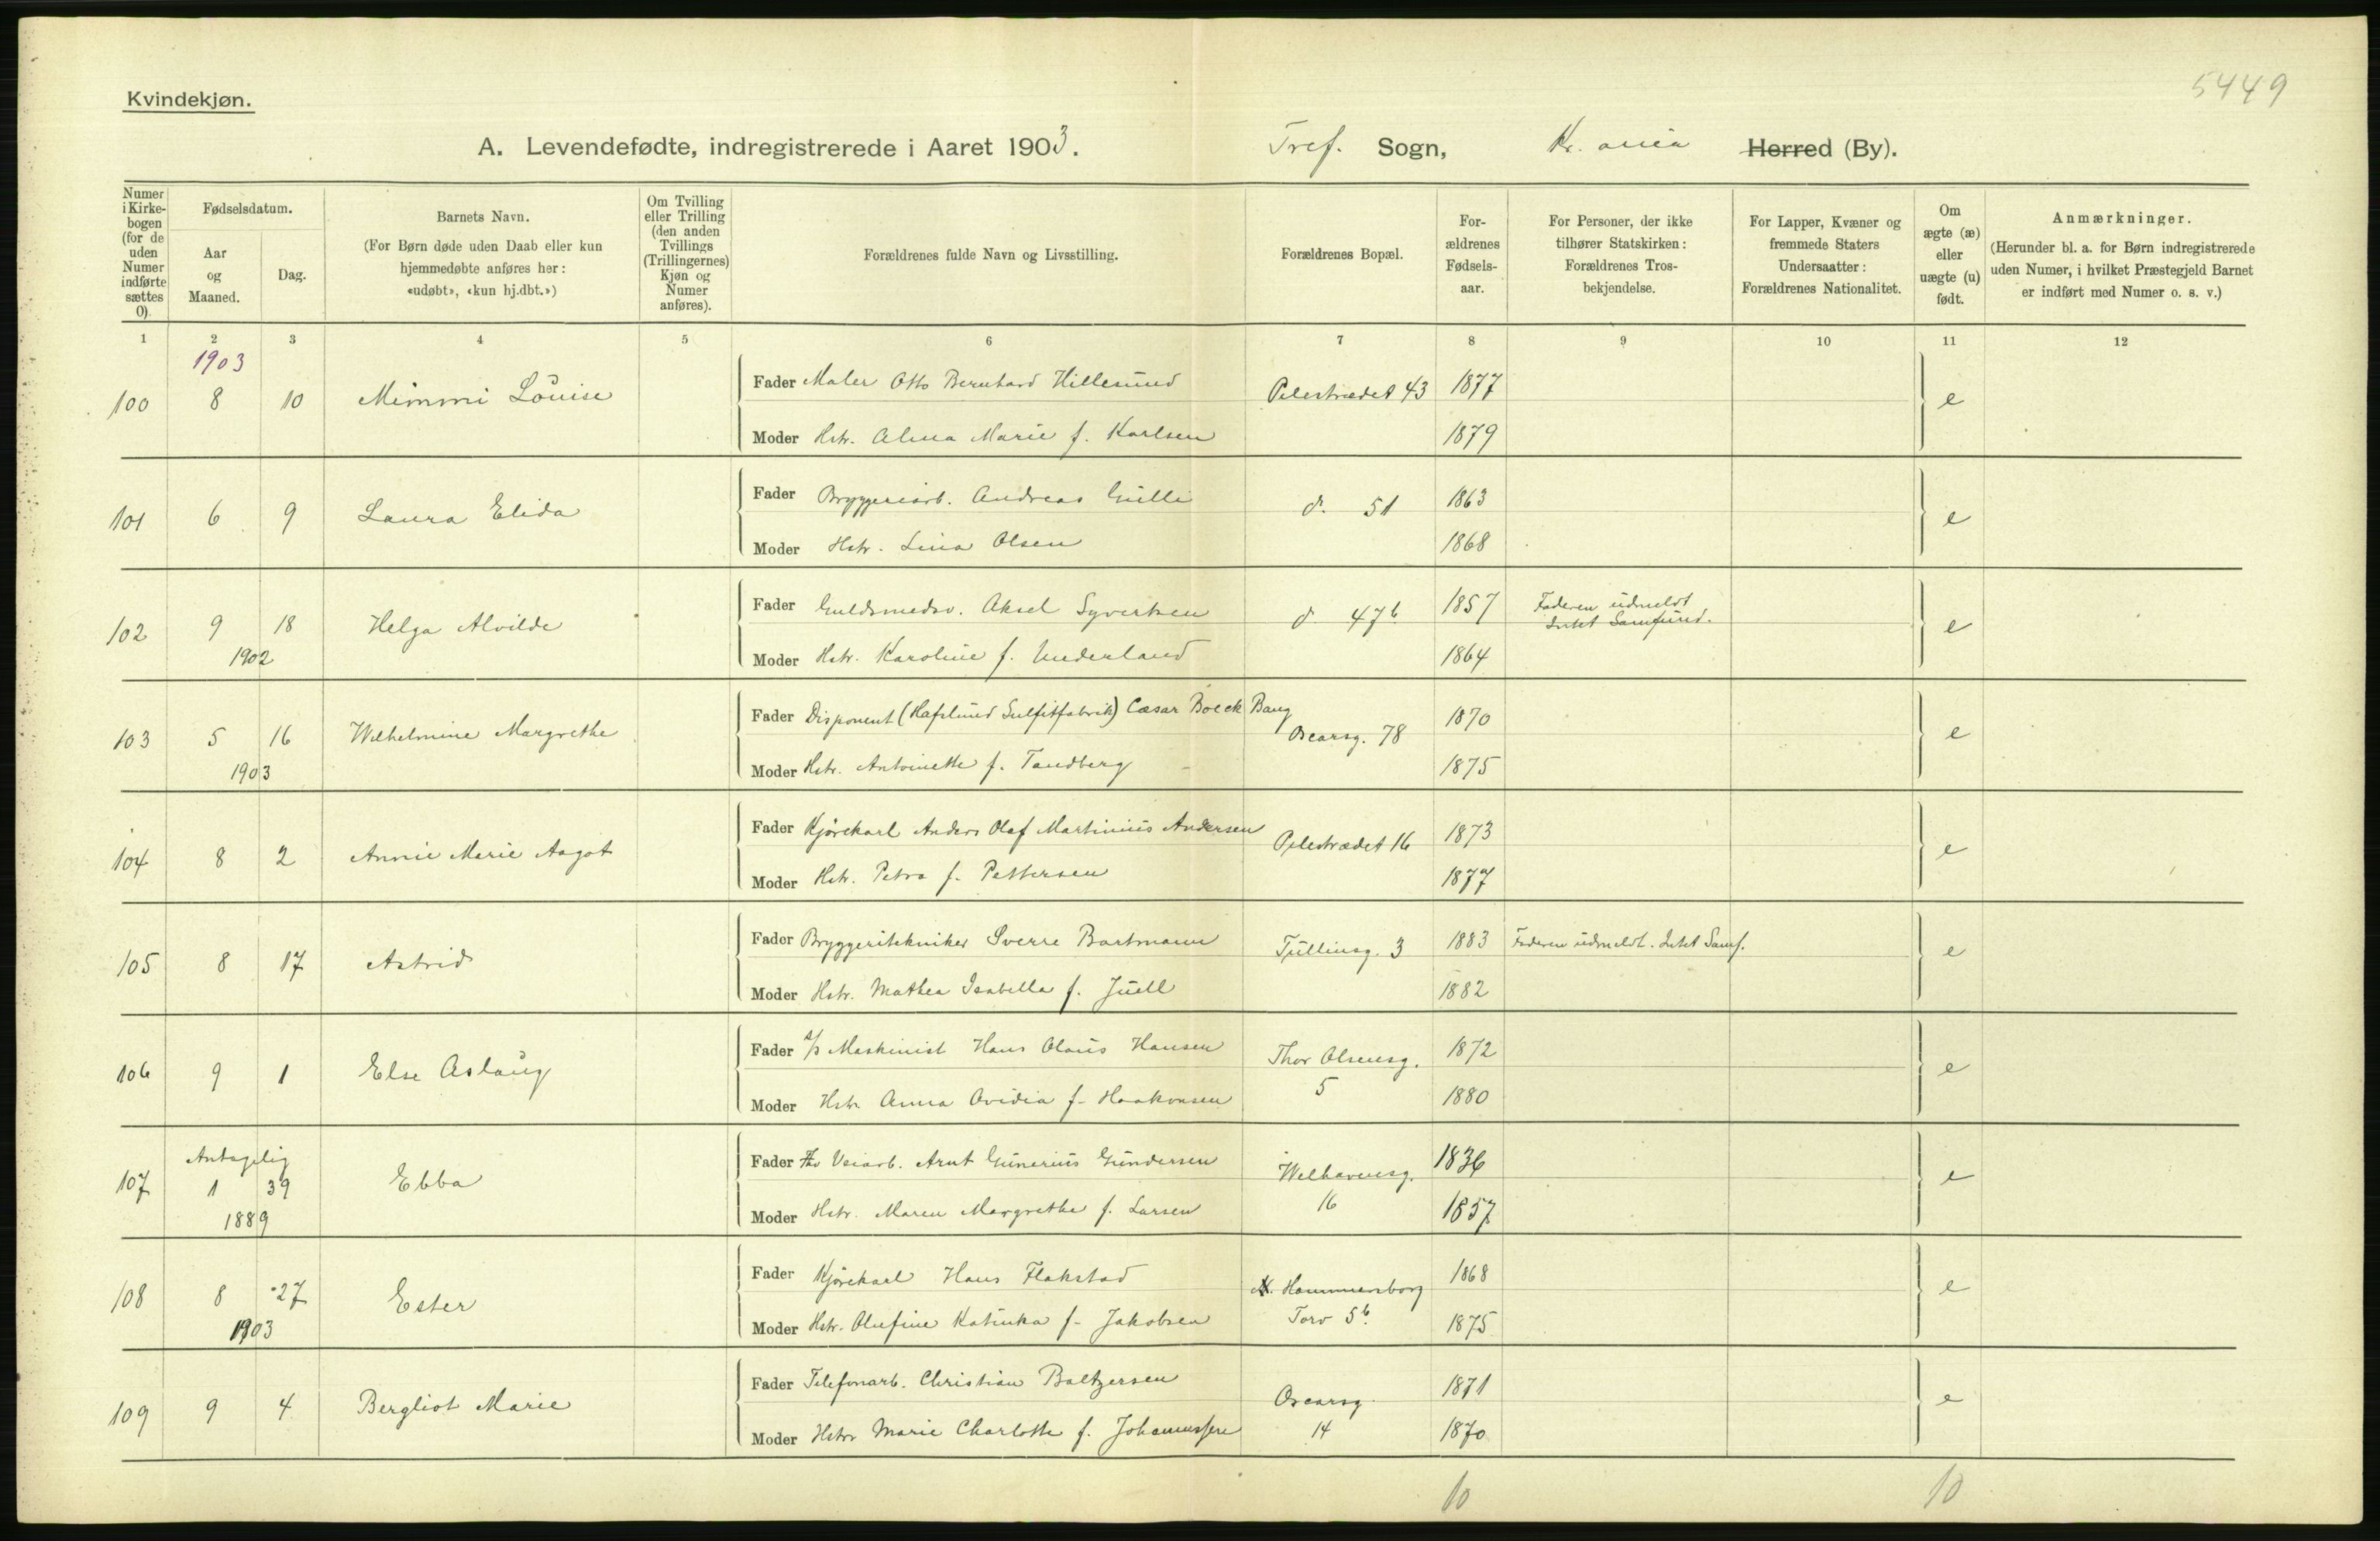 5449
Kvindekjøn.
A. Levendefødte, indregistrerede i Aaret 1903. Tref. Sogn, Kr. ania Herred (By).
Numer i Kirkebogen (for de uden Numer indførte sættes 0).
Fødselsdatum.
Aar og Maaned.
Dag.
Barnets Navn.
(For Børn døde uden Daab eller kun hjemmedøbte anføres her: «udøbt», «kun hj.dbt.»)
Om Tvilling eller Trilling (den anden Tvillings (Trillingernes) Kjøn og Numer anføres).
Forældrenes fulde Navn og Livsstilling.
Forældrenes Bopæl.
Forældrenes Fødselsaar.
For Personer, der ikke tilhører Statskirken: Forældrenes Trosbekjendelse.
For Lapper, Kvæner og fremmede Staters Undersaatter: Forældrenes Nationalitet.
Om ægte (æ) eller uægte (u) født.
Anmærkninger.
(Herunder bl. a. for Børn indregistrerede uden Numer, i hvilket Præstegjeld Barnet er indført med Numer o. s. v.)
1 2 3 4 5 6 7 8 9 10 11 12
1903
100 8 10 Mimmi Louise Fader Maler Otto Bernhard Hillesund Pilestrædet 43 1877 e
Moder Hstr. Alma Marie f. Karlsen 1879
101 6 9 Laura Elida Fader Bryggeriarb. Andreas Gulli d. 51 1863 e
Moder Hstr. Lina Olsen 1868
102 9 18 Helga Alvilde Fader Guldsmedsv. Aksel Syvertsen d. 47 b. 1857 Faderen udmeldt Intet Samfund. e
1902 Moder Hstr. Karoline f. Underland 1864
103 5 16 Wilhelmine Margrethe Fader Disponent (Hafslund Sulfitfabrik) Cæsar Boeck Bang Oscarsg. 78 1870 e
1903 Moder Hstr. Antoinette f. Tandberg 1875
104 8 2 Annie Marie Aagot Fader Kjørekarl Anders Olaf Martinius Andersen Pilestrædet 16 1873 e
Moder Hstr. Petra f. Pettersen 1877
105 8 17 Astrid Fader Bryggeritekniker Sverre Bartmann Tullinsg. 3 1883 Faderen udmeldt. Intet Samf. e
Moder Hstr. Mathea Isabella f. Juell 1882
106 9 1 Else Aslaug Fader Maskinist Hans Olaus Hansen Thor Olsensg. 1872 e
Moder Hstr. Anna Ovidia f. Haakonsen 5 1880
107 Antagelig 1 39 Ebba Fader Veiarb. Arnt Gunerius Gundersen Welhavensg. 1836 e
1889 Moder Hstr. Maren Margrethe f. Larsen 16 1857
108 8 27 Ester Fader Kjørekarl Hans Flakstad Hammersborg 1868 e
1903 Moder Hstr. Olufine Katinka f. Jakobsen Torv 5 b. 1875
109 9 4 Bergliot Marie Fader Telefonarb. Christian Baltzersen Oscarsg. 1871 e
Moder Hstr Marie Charlotte f. Johannessen 14 1870
10 10